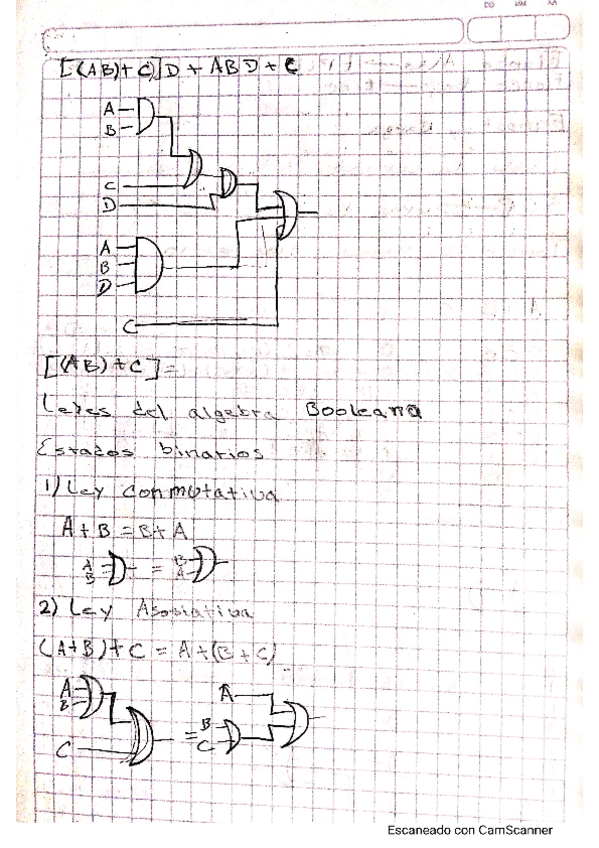 DD MM AA
[(AB)+C)]D + ABD + C
A
B
C
D
A
B
D
C
[(AB)+C]=
Leyes del algebra Booleana
Estados binarios
1) Ley conmutativa
A + B = B + A
A
B
=
B
A
2) Ley Asosiativa
(A+B)+C = A+(B+C)
A
B
C
=
A
B
C
Escaneado con CamScanner